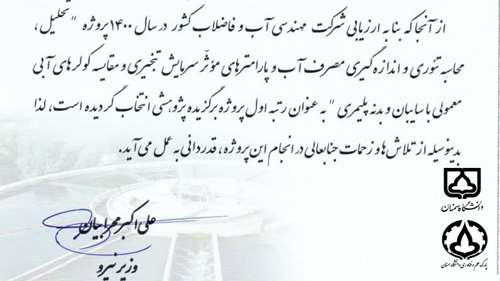 از آنجا که بنا به ارزیابی شرکت مهندسی آب و فاضلاب کشور در سال ۱۴۰۰ پروژه "تحلیل،
محاسبه تئوری و اندازه گیری مصرف آب و پارامترهای مؤثر سرمایش تبخیری و مقایسه کولرهای آبی
معمولی با سایبان و بدنه پلیمری" به عنوان رتبه اول پروژه برگزیده پژوهشی انتخاب گردیده است، لذا
بدینوسیله از تلاش ها و زحمات جنابعالی در انجام این پروژه، قدردانی به عمل می آید.
علی اکبر محرابیان
وزیر نیرو
دانشگاه سمنان
پارک علم و فناوری دانشگاه سمنان